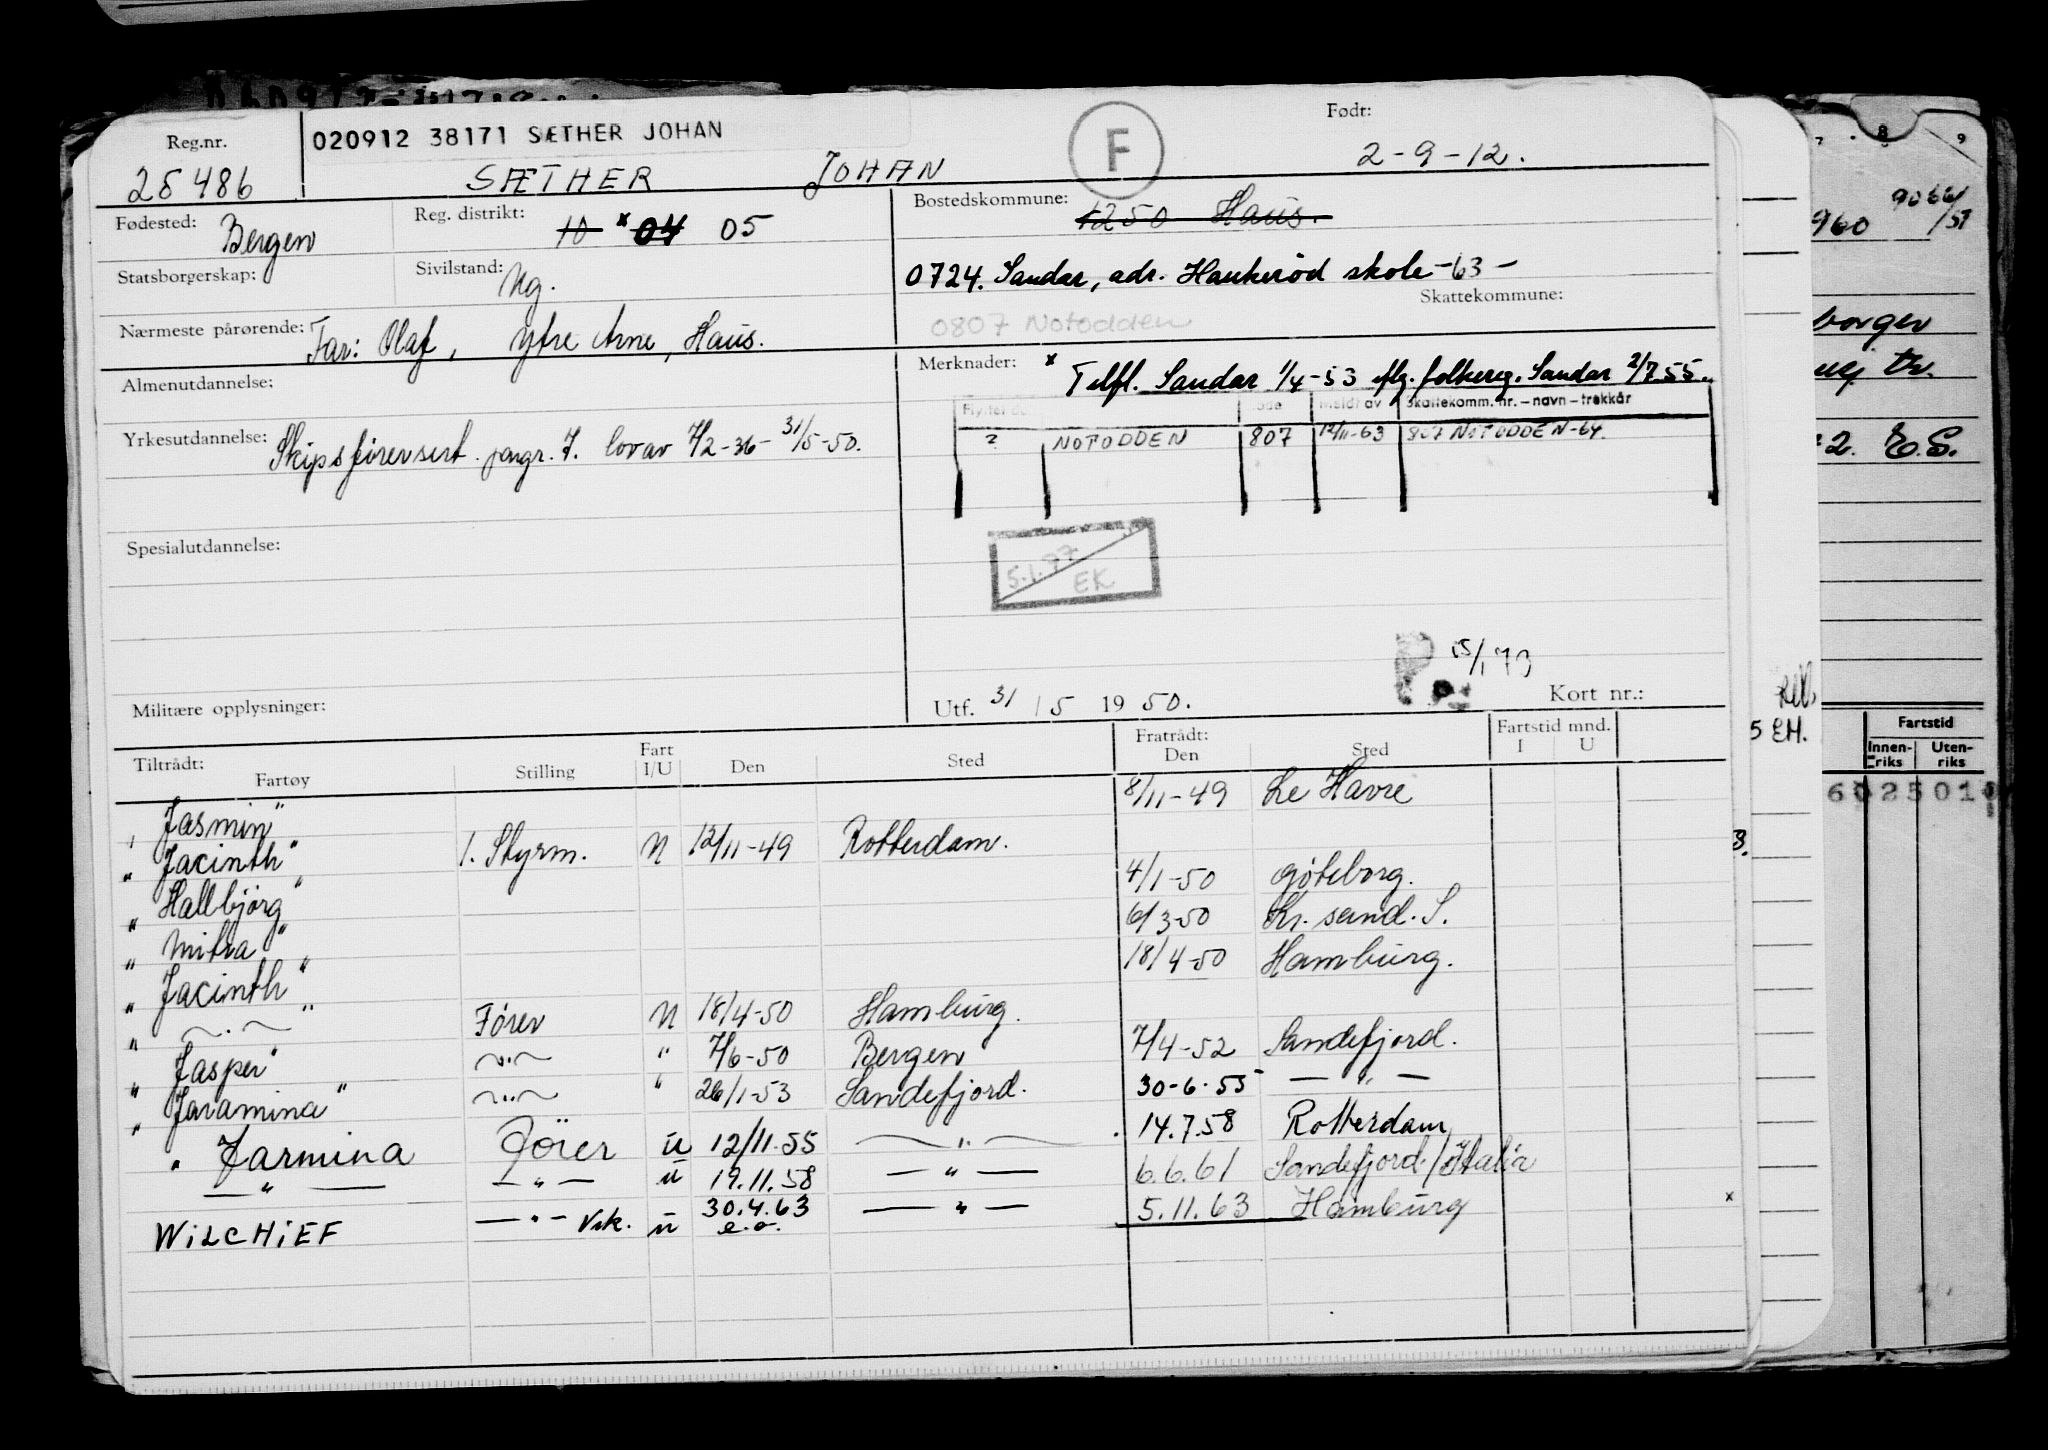 Reg.nr.
020912 38171 SÆTHER JOHAN
F
Født:
25486 SÆTHER JOHAN 2-9-12.
Fødested: Bergen
Reg. distrikt: 10 x 04 05
Bostedskommune: 1250 Haus.
Statsborgerskap:
Sivilstand: Ug.
0724. Sandar, adr. Haukerød skole -63-
Skattekommune:
0807 Notodden
Nærmeste pårørende: Far: Olaf, Ytre Arne, Haus.
Merknader: x Tilfl. Sandar 1/4-53 flg. folkereg. Sandar 2/7.55.
Almenutdannelse:
Meldt av Skattekomm. nr. – navn – trekkår
? NOTODDEN 807 12/11-63 807 NOTODDEN-64.
Yrkesutdannelse: Skipsførersert. pargr. 7. lov av 7/2-36- 31/5-50.
Spesialutdannelse:
5.1.77
EK
15/1 73
Militære opplysninger:
Utf. 31/5 1950.
Kort nr.:
Tiltrådt:
Fartøy Stilling Fart I/U Den Sted
Fratrådt:
Den Sted
Fartstid mnd.
I U
"Jasmin" 8/11-49 Le Havre
"Jacinth" 1. Styrm. N 12/11-49 Rotterdam.
"Hallbjørg" 4/1-50 Gøteborg.
"Mitra" 6/3-50 Kr. sand. S.
"Jacinth" 18/4-50 Hamburg.
" —.— " Fører N 18/4-50 Hamburg.
"Jasper" —"— " 7/6-50 Bergen 7/4-52 Sandefjord.
"Jaramina" —"— " 26/1-53 Sandefjord. 30-6-55 — " —
" Jarmina Fører U 12/11.55 — " — 14.7.58 Rotterdam
— " — — " — U 19.11.58 — " — 6.6.61 Sandefjord/Italia
WILCHIEF — " — Vik. U 30.4.63 — " — 5.11.63 Hamburg
e.o.
8 9
9066/
960 /57
borger
2. E.S.
5 EH.
Fartstid
Innen-
riks
Uten-
riks
6025010
B.
x